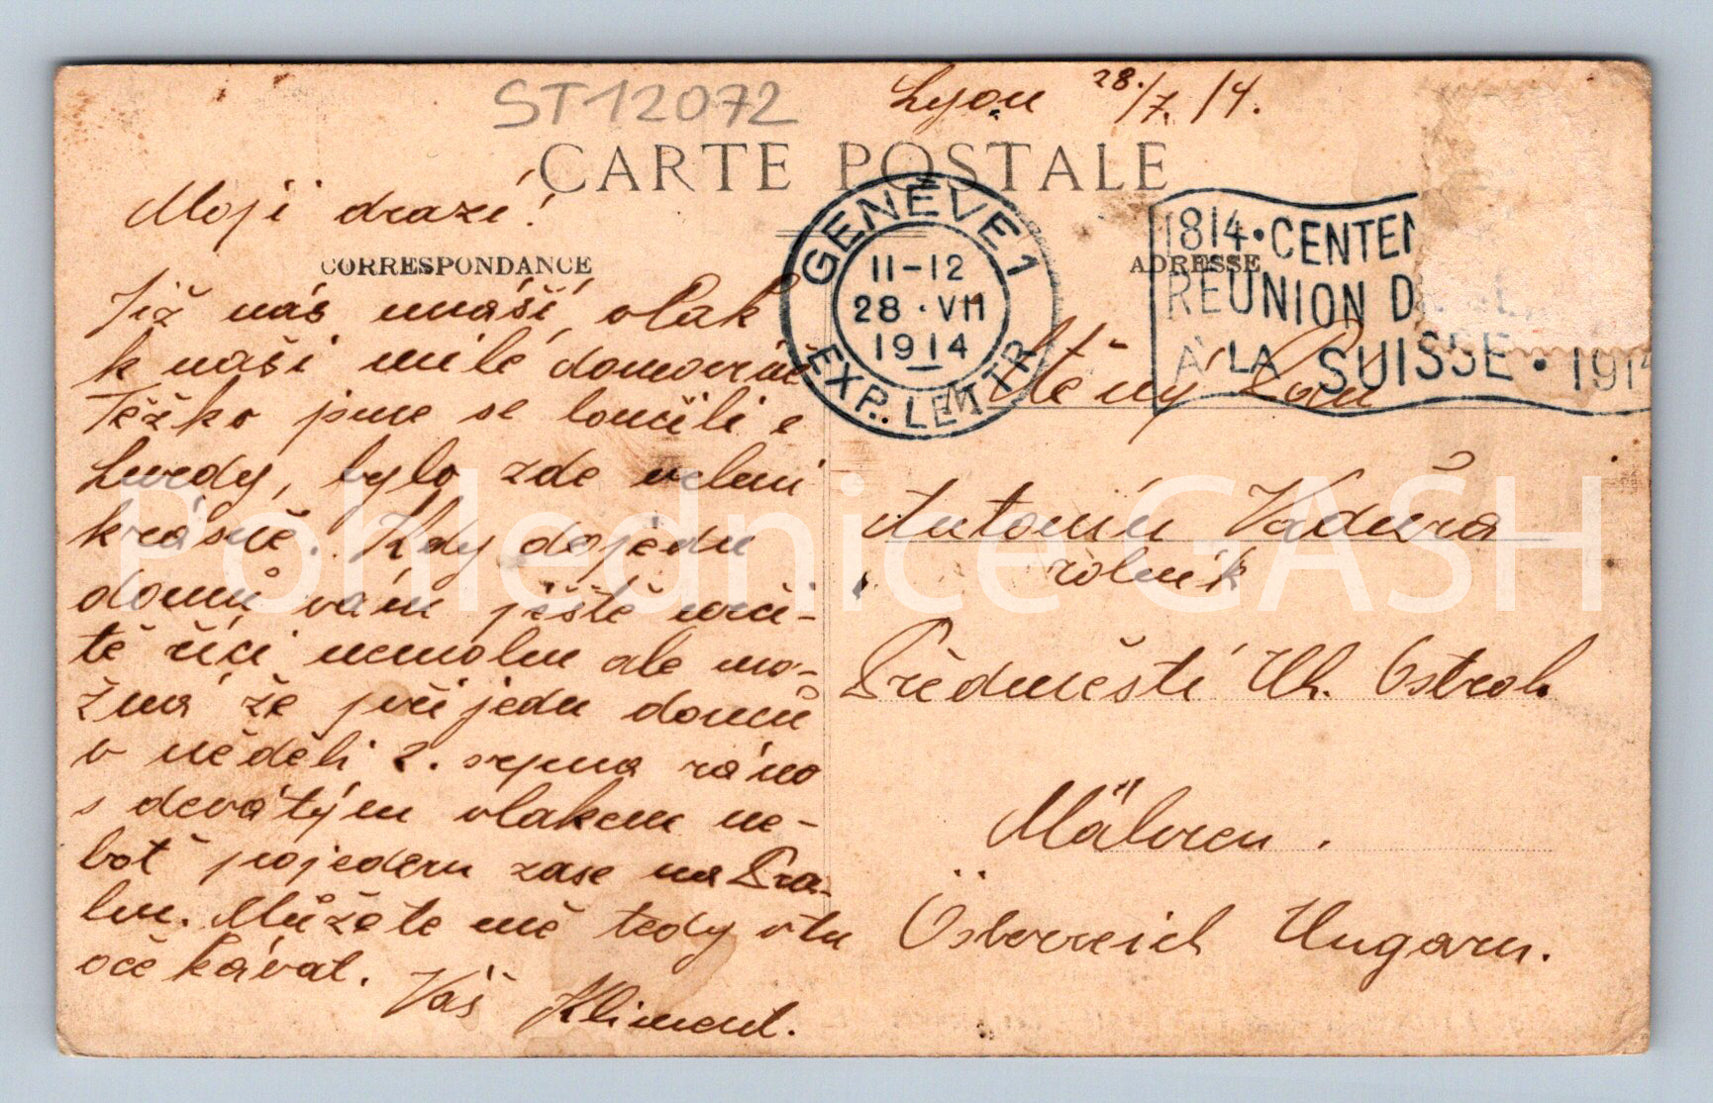 ST12072
Lyon 28./7. 14.
CARTE POSTALE
Moji drazí!
CORRESPONDANCE
Již nás unáší vlak
k naši milé domovině
Těžko jsme se loučili s
Lurdy, bylo zde velmi
krásně. Kdy dojedu
domů vám ještě urči-
tě říci nemohu ale mo-
žná že přijedu domů
v neděli 2. srpna ráno
s devátým vlakem ne-
boť pojedem zase na Pra-
hu. Můžete mě tedy vtu
očekávat.
Váš Kliment.
GENÈVE 1
11-12
28·VII
1914
EXP. LETTR
1814·CENTEN
RÉUNION D
À LA SUISSE·1914
ADRESSE
Ctěný Pan
Antonín Vaďura
rolník
Předměstí Uh. Ostroh.
Mähren.
Österreich Ungarn.
Pohlednice GASH